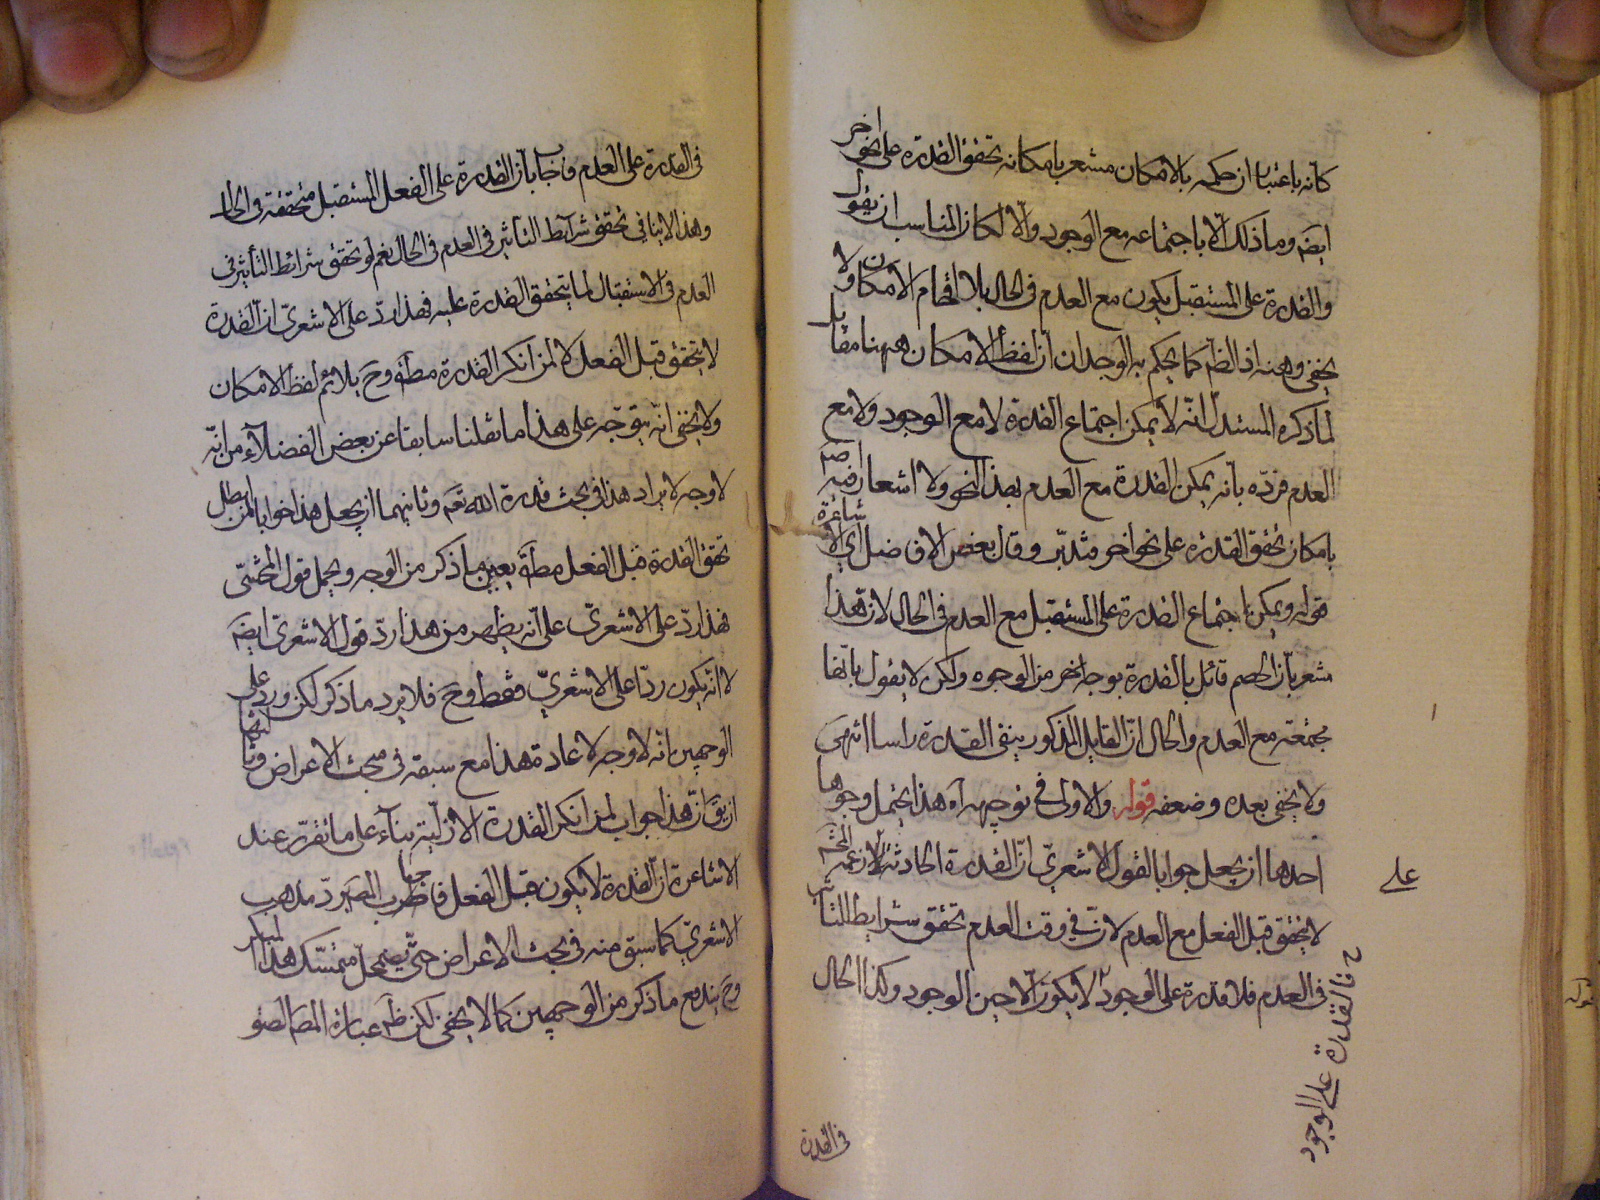 كانه باعتبار ان حكمه بالامكان مشعر بامكانه تحقق القدرة على نحو اخر
ايضه وما ذلك الا باجتماعه مع الوجود والا لكان المناسب ان يقول
والقدرة على المستقبل يكون مع العدم فى الحال بلا اقحام الامكان ولا
يخفى وهنه اذ الظم كما يحكم به الوجدان ان لفظ الامكان ههنا مقابل
لما ذكره المستدل انه لا يمكن اجتماع القدرة لا مع الوجود ولا مع
العدم فرده بانه يمكن القدرة مع العدم بهذا النحو ولا اشعار فيه اصم
بامكان تحقق القدرة على نحو اخر فتدبر وقال بعض الافاضل اى الاشاعرة
قوله ويمكن اجتماع القدرة على المستقبل مع العدم فى الحال لان هذا
مشعر بان الخصم قائل بالقدرة بوجه اخر من الوجوه ولكن لا يقول بانها
مجتمعة مع العدم والحال ان القايل المذكور ينفى القدرة راسا انتهى
ولا يخفى بعده وضعفه قوله والاولى فى توجيهه آه هذا يحتمل وجوها
احدها ان يجعل جوابا لقول الاشعرى ان القدرة الحادثة
لا يتحقق قبل الفعل مع العدم لان فى وقت العدم تحقق شرايط التاثير
فى العدم فلا قدرة على الوجود لا يكون الا حين الوجود وكذا الحال
على
فالقدرة على الوجود
فى القدرة
فى القدرة على العدم فاجاب بان القدرة على الفعل المستقبل متحققة فى الحال
وهذا لا ينافى تحقق شرائط التأثير فى العدم فى الحال نعم لو تحقق شرائط التأثير فى
العدم فى الاستقبال لما يتحقق القدرة عليه فهذا رد على الاشعرى ان القدرة
لا تتحقق قبل الفعل لا لمن انكر القدرة مطم وح يلائم لفظ الامكان
ولا يخفى انه يتوجه على هذا ما نقلنا سابقا عن بعض الفضلاء من انه
لا وجه لايراد هذا فى بحث قدرة الله تعم وثانيهما ان يجعل هذا جوابا لمن ابطل
تحقق القدرة قبل الفعل مطم بعين ما ذكر من الوجه ويحمل قول المحشى
فهذا رد على الاشعرى على انه يظهر من هذا رد قول الاشعرى ايضه
لا انه يكون ردا على الاشعرى فقط وح فلا يرد ما ذكر لكن ورد على
الوجهين انه لا وجه لاعادة هذا مع سبقه فى مبحث الاعراض وثالثها
ان يق ان هذا جواب لمن انكر القدرة الازلية بناء على ما تقرر عند
الاشاعرة ان القدرة لا يكون قبل الفعل المص رد مذهب
الاشعرى كما سبق منه فى بحث الاعراض حتى يضمحل متمسك هذا المنكر
وح يندفع ما ذكر من الوجهين كما لا يخفى لكن ظم عبارة المصم